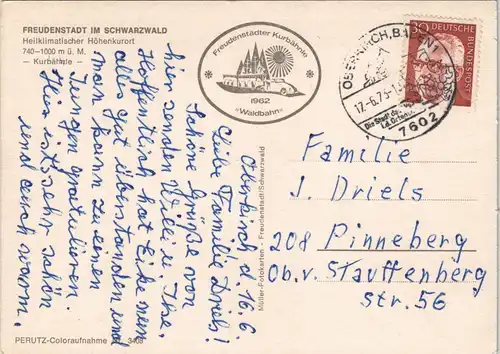 FREUDENSTADT IM SCHWARZWALD
Heilklimatischer Höhenkurort
740-1000 m ü. M.
— Kurbähnle —
Freudenstädter Kurbähnle
1962
»Waldbahn«
OBERKIRCH, B
17.-6.75-1
Die Stadt de
i.d. Ortenau
7602
30 DEUTSCHE
BUNDESPOST
Oberkirch d. 16.6
Liebe Familie Driels!
Schöne Grüße von
hier senden Willi u. Ilse.
Hoffentlich hat Elke nen
alles gut überstanden und
man kann zu einen
Jungen gratulieren.
Hier ist's sehr schön
und auch warm.
Müller-Fotokarten - Freudenstadt/Schwarzwald
Familie
J. Driels
208 Pinneberg
Ob. v. Stauffenberg
Str. 56
PERUTZ-Coloraufnahme 3468